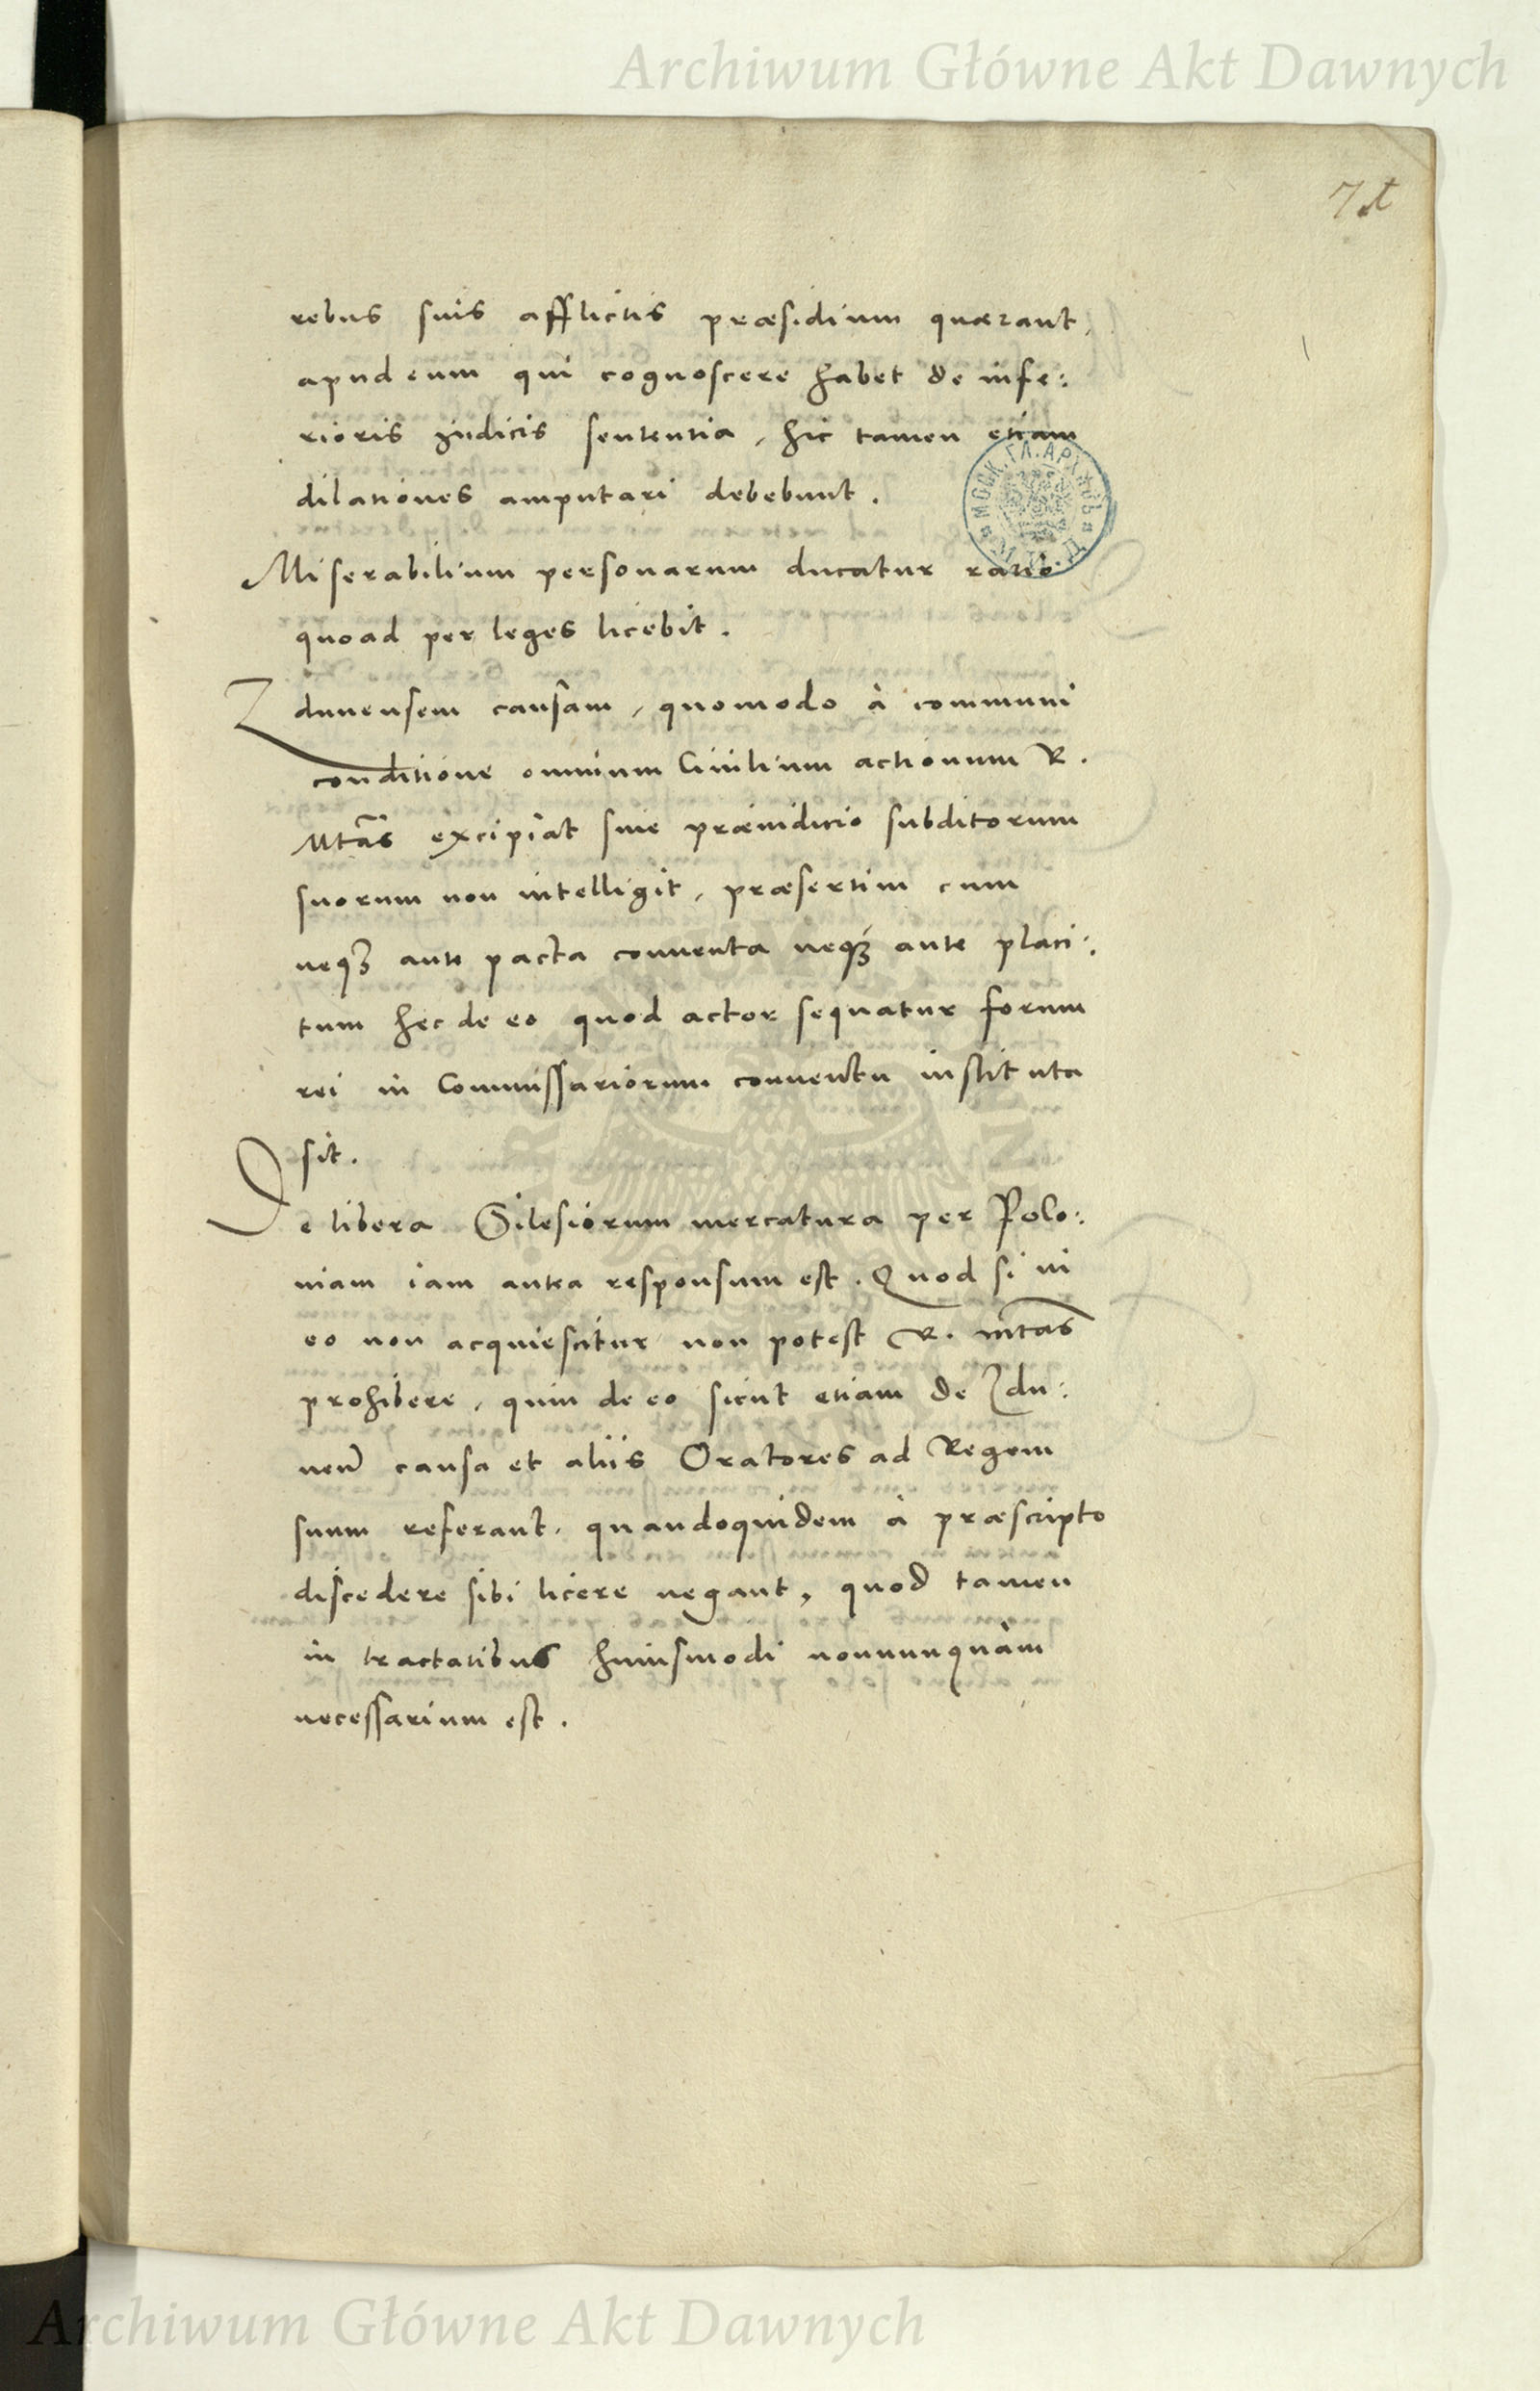 Archiwum Główne Akt Dawnych
rebus suis afflictis præsidium quærant,
apud eum qui cognoscere habet de infe:
rioris iudicis sententia, hic tamen etiam
dilationes amputari debebunt.
Miserabilium personarum ducatur ratio
quoad per leges licebit.
Zdunensem causam, quomodo à communi
conditione omnium Ciuilium actionum R.
Mtas excipiat sine præiudicio subditorum
suorum non intelligit, præsertim cum
neq3 ante pacta conuenta neq3 ante placi:
tum hec de eo quod actor sequatur forum
rei in Commissariorum conuentu instituta
sit.
De libera Silesiorum mercatura per Polo:
niam iam antea responsum est. Quod si in
eo non acquiescitur non potest R. Mtas
prohibere, quin de eo sicut etiam de Zdu:
nen̄ causa et aliis Oratores ad Regem
suum referant, quandoquidem à præscripto
discedere sibi licere negant, quod tamen
in tractatibus huiusmodi nonnunquàm
necessarium est.
Archiwum Główne Akt Dawnych